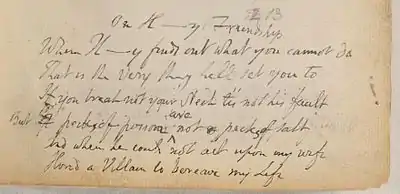 On H——ys Friendship
When H——y finds out what you cannot do
That is the Very thing hell set you to
If you break not your Neck tis not his Fault
But pecks of poison are not pecks of salt
And when he could not act upon my wife
Hired a Villain to bereave my Life